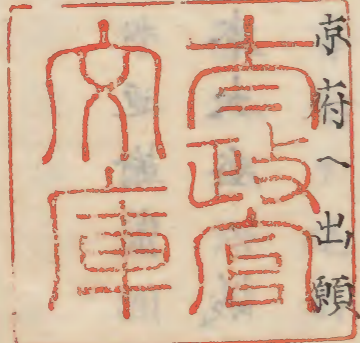 京府へ出願
太政官
文庫